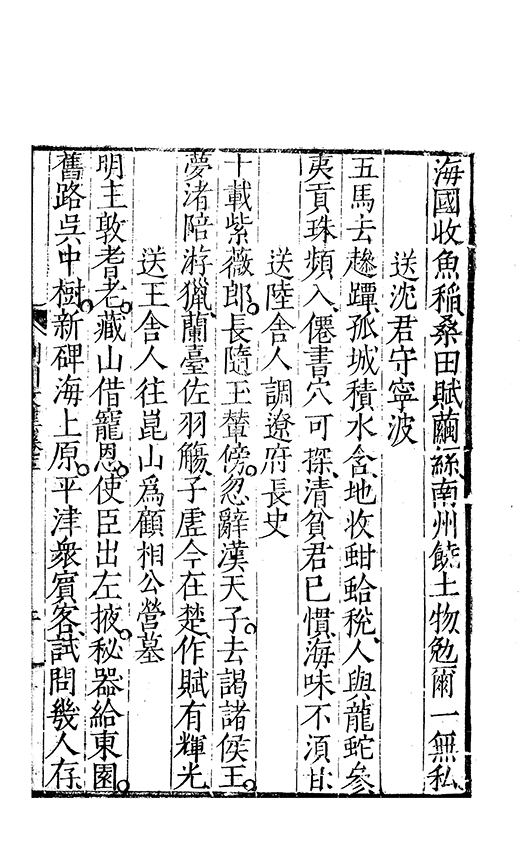 海國收魚稻桑田賦繭絲南州饒土物勉爾一無私
送沈君守寧波
五馬去趂蹕孤城積水含地收蚶蛤稅人與龍蛇參
夷貢珠頻入僊書穴可探清貧君已慣海味不湏甘
送陸舍人調遼府長史
十載紫薇郎長隨王輦傍忽辭漢天子去謁諸侯王
夢渚陪游獵蘭臺佐羽觴子虛今在楚作賦有輝光
送王舍人往崑山爲顧相公營墓
明主敦耆老藏山借寵恩使臣出左掖秘器給東園
舊路吳中樹新碑海上原平津衆賓客試問幾人存